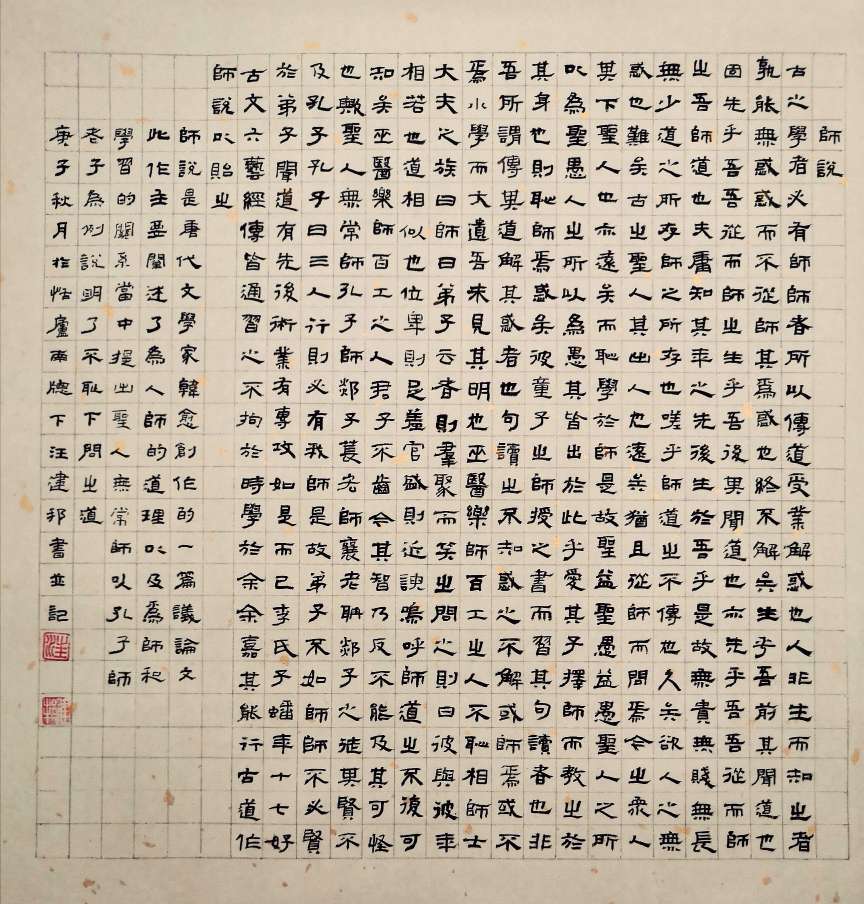 師說
古之學者必有師師者所以傳道受業解惑也人非生而知之者
孰能無惑惑而不從師其為惑也終不解矣生乎吾前其聞道也
固先乎吾吾從而師之生乎吾後其聞道也亦先乎吾吾從而師
之吾師道也夫庸知其年之先後生於吾乎是故無貴無賤無長
無少道之所存師之所存也嗟乎師道之不傳也久矣欲人之無
惑也難矣古之聖人其出人也遠矣猶且從師而問焉今之眾人
其下聖人也亦遠矣而恥學於師是故聖益聖愚益愚聖人之所
以為聖愚人之所以為愚其皆出於此乎愛其子擇師而教之於
其身也則恥師焉惑矣彼童子之師授之書而習其句讀者也非
吾所謂傳其道解其惑者也句讀之不知惑之不解或師焉或不
焉小學而大遺吾未見其明也巫醫樂師百工之人不恥相師士
大夫之族曰師曰弟子云者則羣聚而笑之問之則曰彼與彼年
相若也道相似也位卑則足羞官盛則近諛嗚呼師道之不復可
知矣巫醫樂師百工之人君子不齒今其智乃反不能及其可怪
也歟聖人無常師孔子師郯子萇弘師襄老聃郯子之徒其賢不
及孔子孔子曰三人行則必有我師是故弟子不如師師不必賢
於弟子聞道有先後術業有專攻如是而已李氏子蟠年十七好
古文六藝經傳皆通習之不拘於時學於余余嘉其能行古道作
師說以貽之
師說是唐代文學家韓愈創作的一篇議論文
此作主要闡述了為人師的道理以及為師和
學習的關系當中提出聖人無常師以孔子師
老子為例說明了不恥下問之道
庚子秋月於恬廬南牕下汪建邦書並記
汪